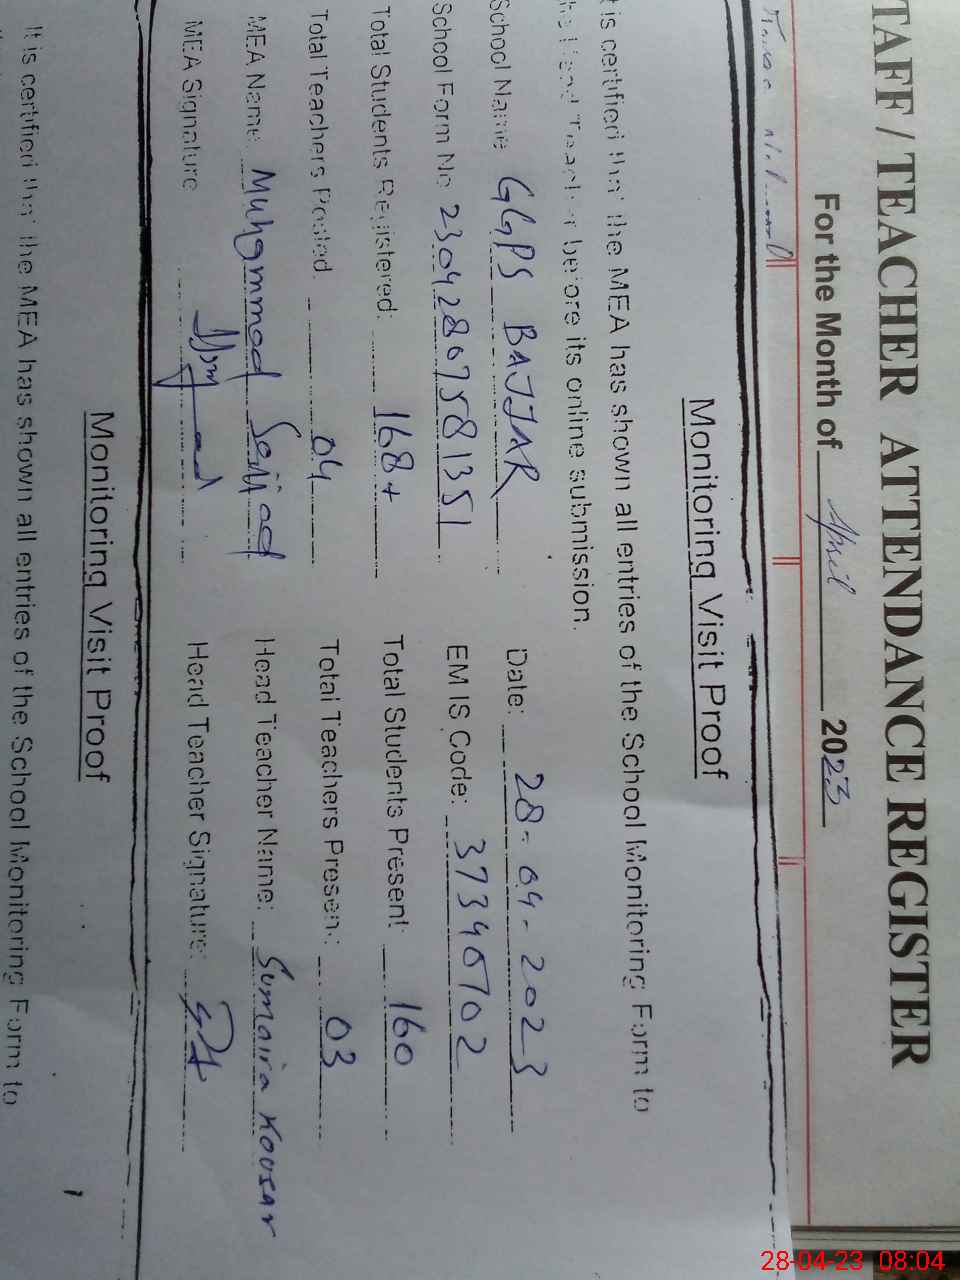 STAFF / TEACHER ATTENDANCE REGISTER
For the Month of April 2023
Monitoring Visit Proof
It is certified that the MEA has shown all entries of the School Monitoring Form to
the Head Teacher before its online submission.
School Name GGPS BAJJAR Date: 28-04-2023
School Form No 23042807581351 EMIS Code: 37340702
Total Students Registered: 168+ Total Students Present: 160
Total Teachers Posted: 04 Total Teachers Present: 03
MEA Name Muhammad Sajjad Head Teacher Name: Sumaira Kousar
MEA Signature Head Teacher Signature:
Monitoring Visit Proof
It is certified that the MEA has shown all entries of the School Monitoring Form to
28-04-23 08:04